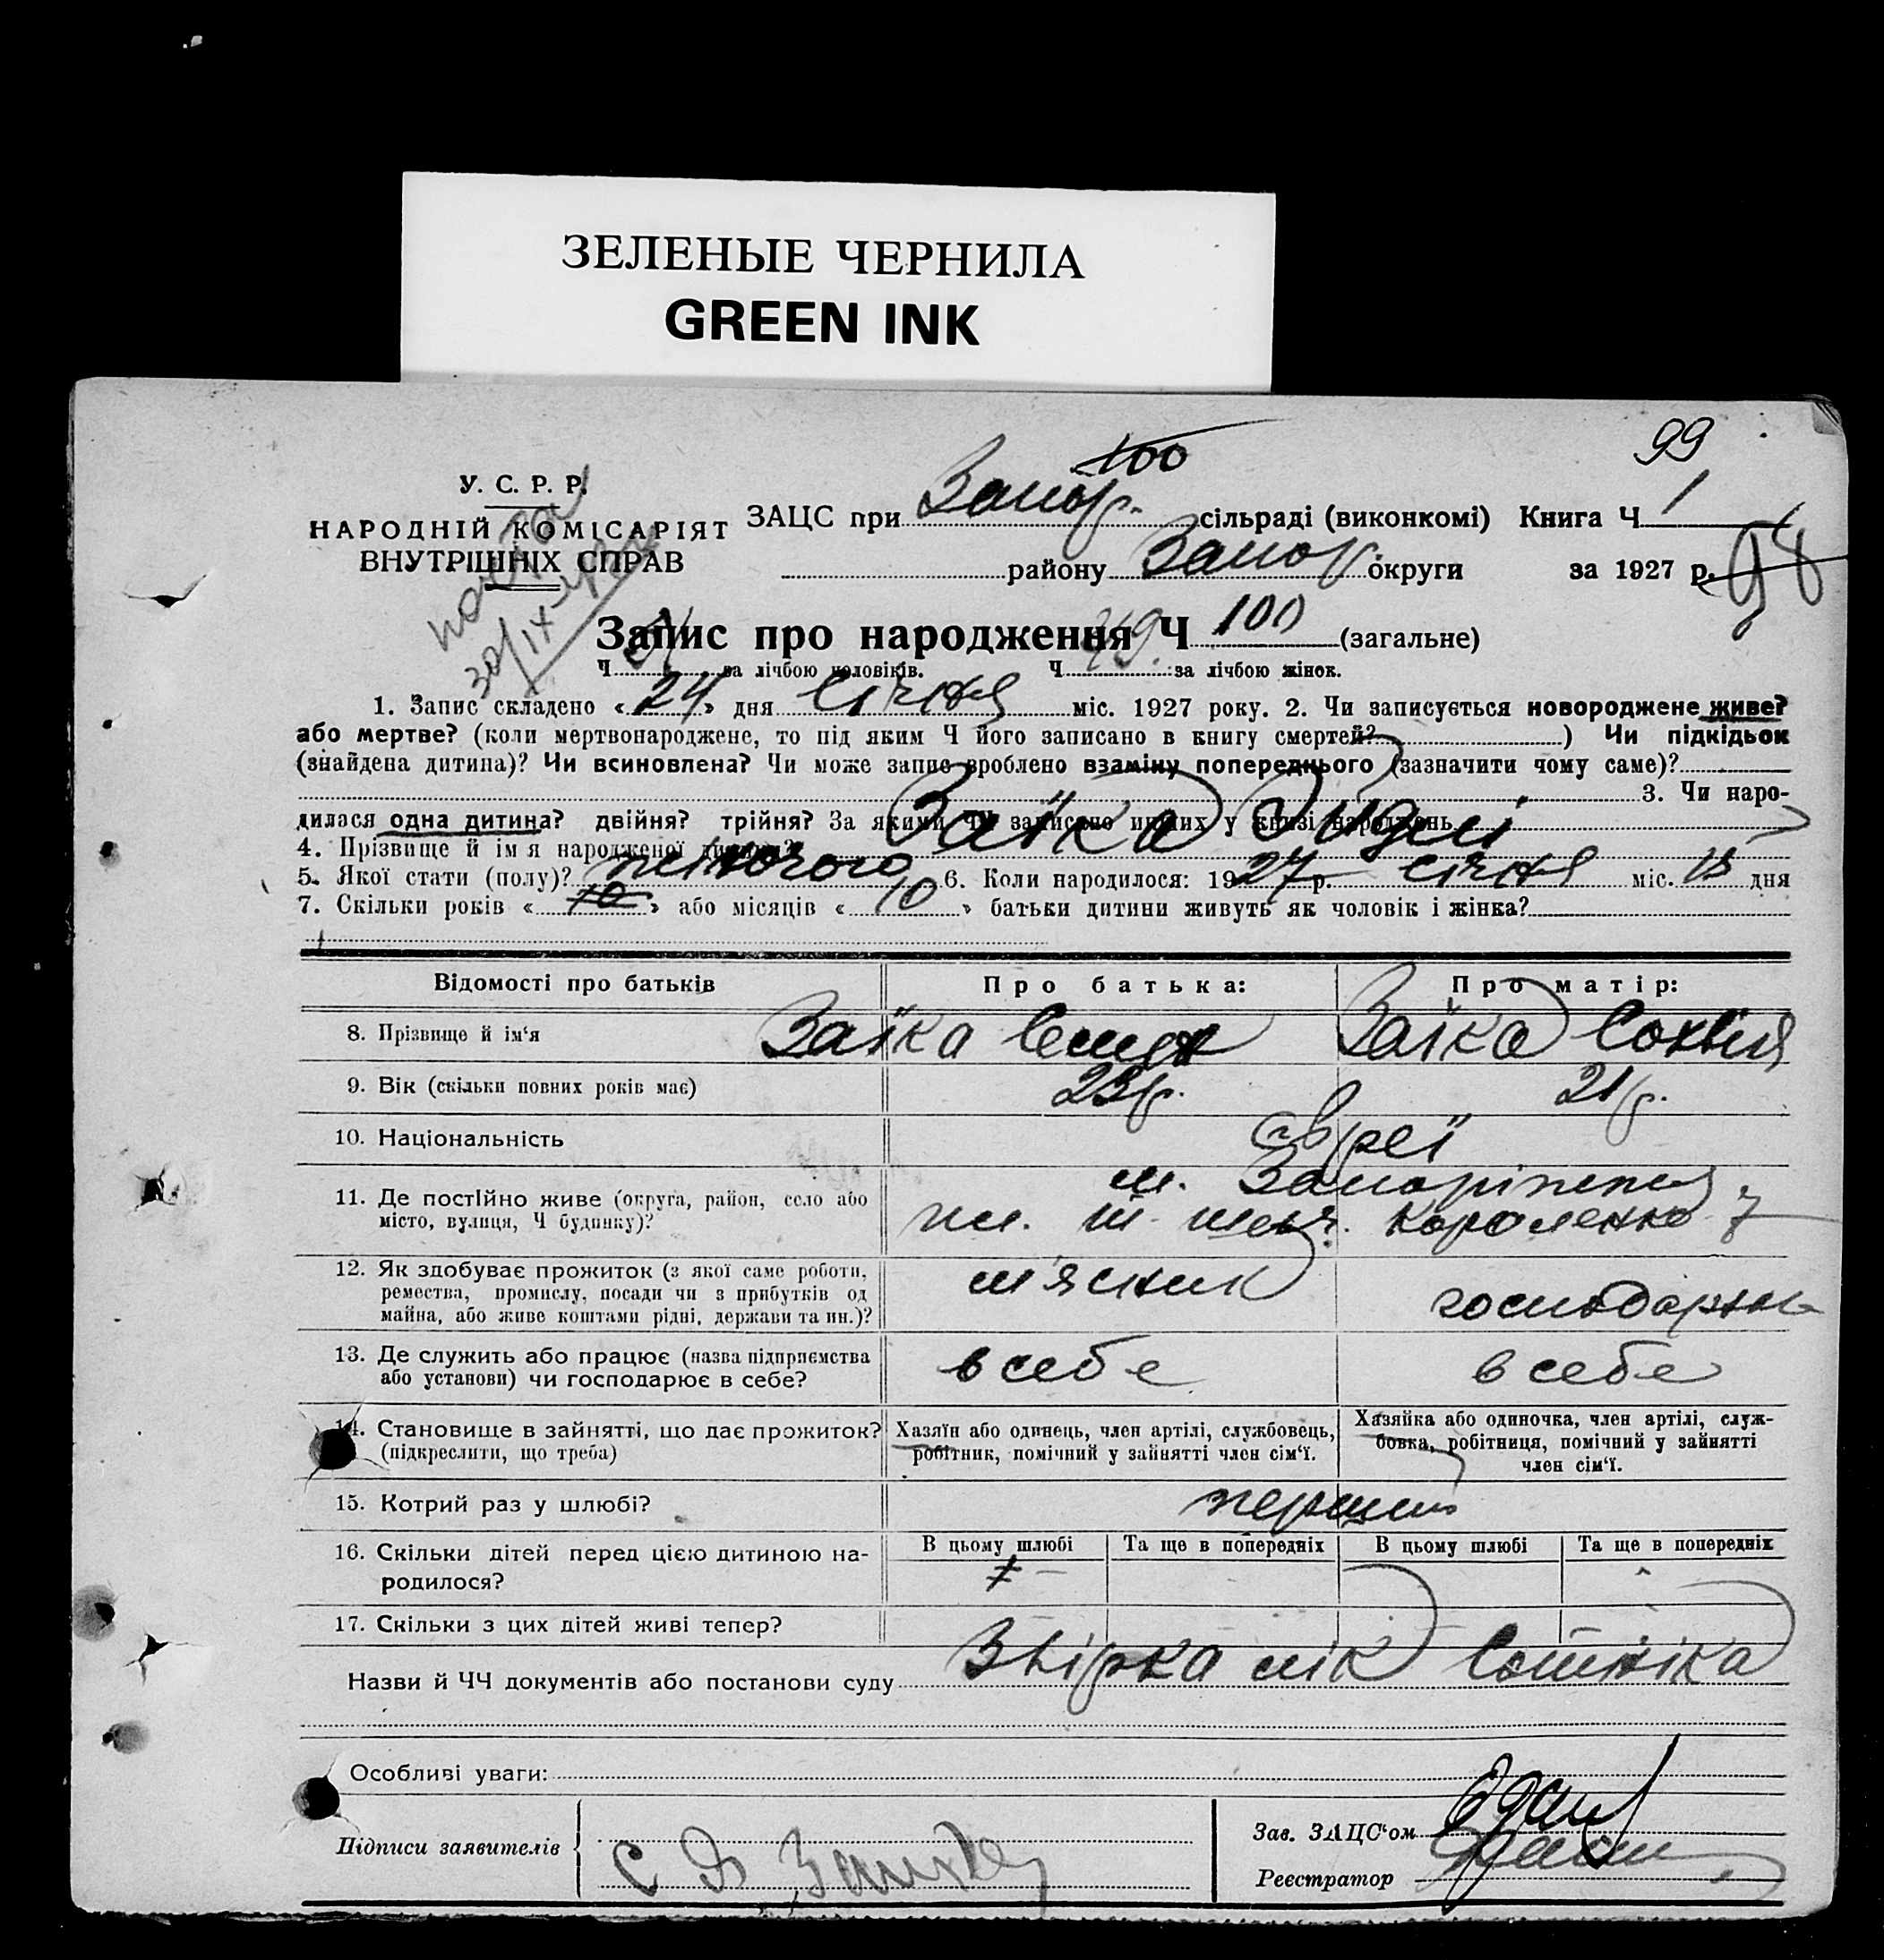 ЗЕЛЕНЫЕ ЧЕРНИЛА
GREEN INK
99
100
У. С. Р. Р.
НАРОДНІЙ КОМІСАРІЯТ
ВНУТРІШНІХ СПРАВ
ЗАЦС при Запор. сільраді (виконкомі) Книга Ч 1
району Запор округи за 1927 р. 98
Запис про народження Ч 100 (загальне)
Ч за лічбою чоловіків. Ч 49. за лічбою жінок.
1. Запис складено « 24 » дня Січня міс. 1927 року. 2. Чи записується новороджене живе?
або мертве? (коли мертвонароджене, то під яким Ч його записано в книгу смертей? ) Чи підкідьок
(знайдена дитина)? Чи всиновлена? Чи може запис зроблено взаміну попереднього (зазначити чому саме)?
3. Чи наро-
дилася одна дитина? двійня? трійня? За якими ЧЧ записано инших у книзі народжень
4. Прізвище й ім я народженої дитини? Заїка
5. Якої стати (полу)? жіночого 6. Коли народилося: 1927 р. січня міс. 13 дня
7. Скільки років « 10 » або місяців « 10 » батьки дитини живуть як чоловік і жінка?
Відомості про батьків Про батька: Про матір:
8. Прізвище й ім‘я Заїка Заїка Софія
9. Вік (скільки повних років має) 23 р. 21 р.
10. Національність євреї
11. Де постійно живе (округа, район, село або м. Запоріжжя
місто, вулиця, Ч будинку)? Короленко 7
12. Як здобуває прожиток (з якої саме роботи, м'ясник господарка
ремества, промислу, посади чи з прибутків од
майна, або живе коштами рідні, держави та ин.)?
13. Де служить або працює (назва підприємства в себе в себе
або установи) чи господарює в себе?
14. Становище в зайнятті, що дає прожиток? Хазяїн або одинець, член артілі, службовець, Хазяйка або одиночка, член артілі, служ-
(підкреслити, що треба) робітник, помічний у зайнятті член сім‘ї. бовка, робітниця, помічний у зайнятті
член сім‘ї.
15. Котрий раз у шлюбі? перший
16. Скільки дітей перед цією дитиною на- В цьому шлюбі Та ще в попередніх В цьому шлюбі Та ще в попередніх
родилося?
17. Скільки з цих дітей живі тепер?
Назви й ЧЧ документів або постанови суду
Особливі уваги:
Підписи заявителів
Зав. ЗАЦС‘ом
Реєстратор